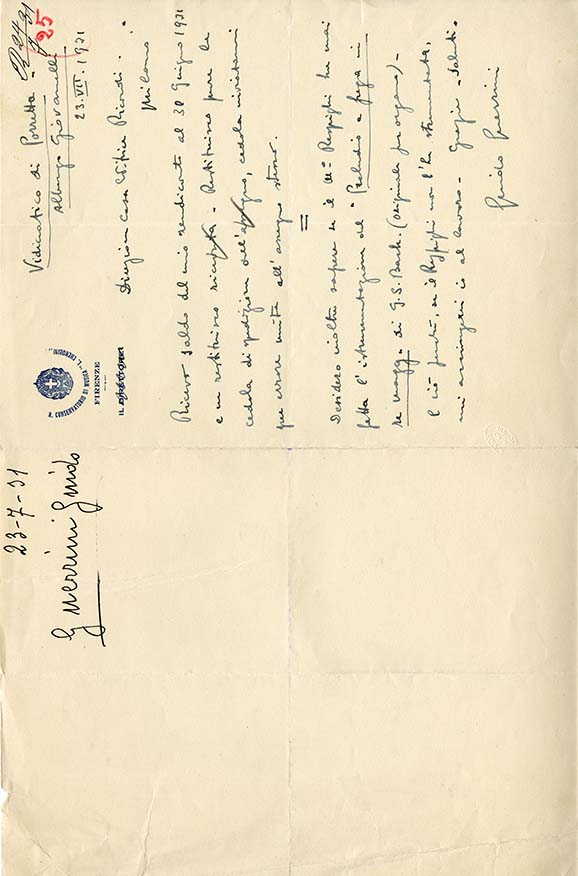 23-7-31
Guerrini Guido
R. CONSERVATORIO DI MUSICA "L. CHERUBINI"
FIRENZE
IL DIRETTORE
25
Vidiciatico di Porretta -
Albergo Giovanelli
23.VII.1931
Direzione Casa Editrice Ricordi -
Milano
Ricevo saldo del mio rendiconto al 30 Giugno 1931
e ne restituisco ricevuta - Restituisco pure la
cedola di spedizione dell'assegno, cedola inviatami
per errore unita all'assegno stesso.
=
Desidero inoltre sapere se il Mº Respighi ha mai
fatta l'istrumentazione del "Preludio e fuga in
re magg." di G. S. Bach. (originale per organo) -
E ciò perché, se il Respighi non l'ha strumentata,
mi accingerei io al lavoro - Grazie - Saluti -
Guido Guerrini